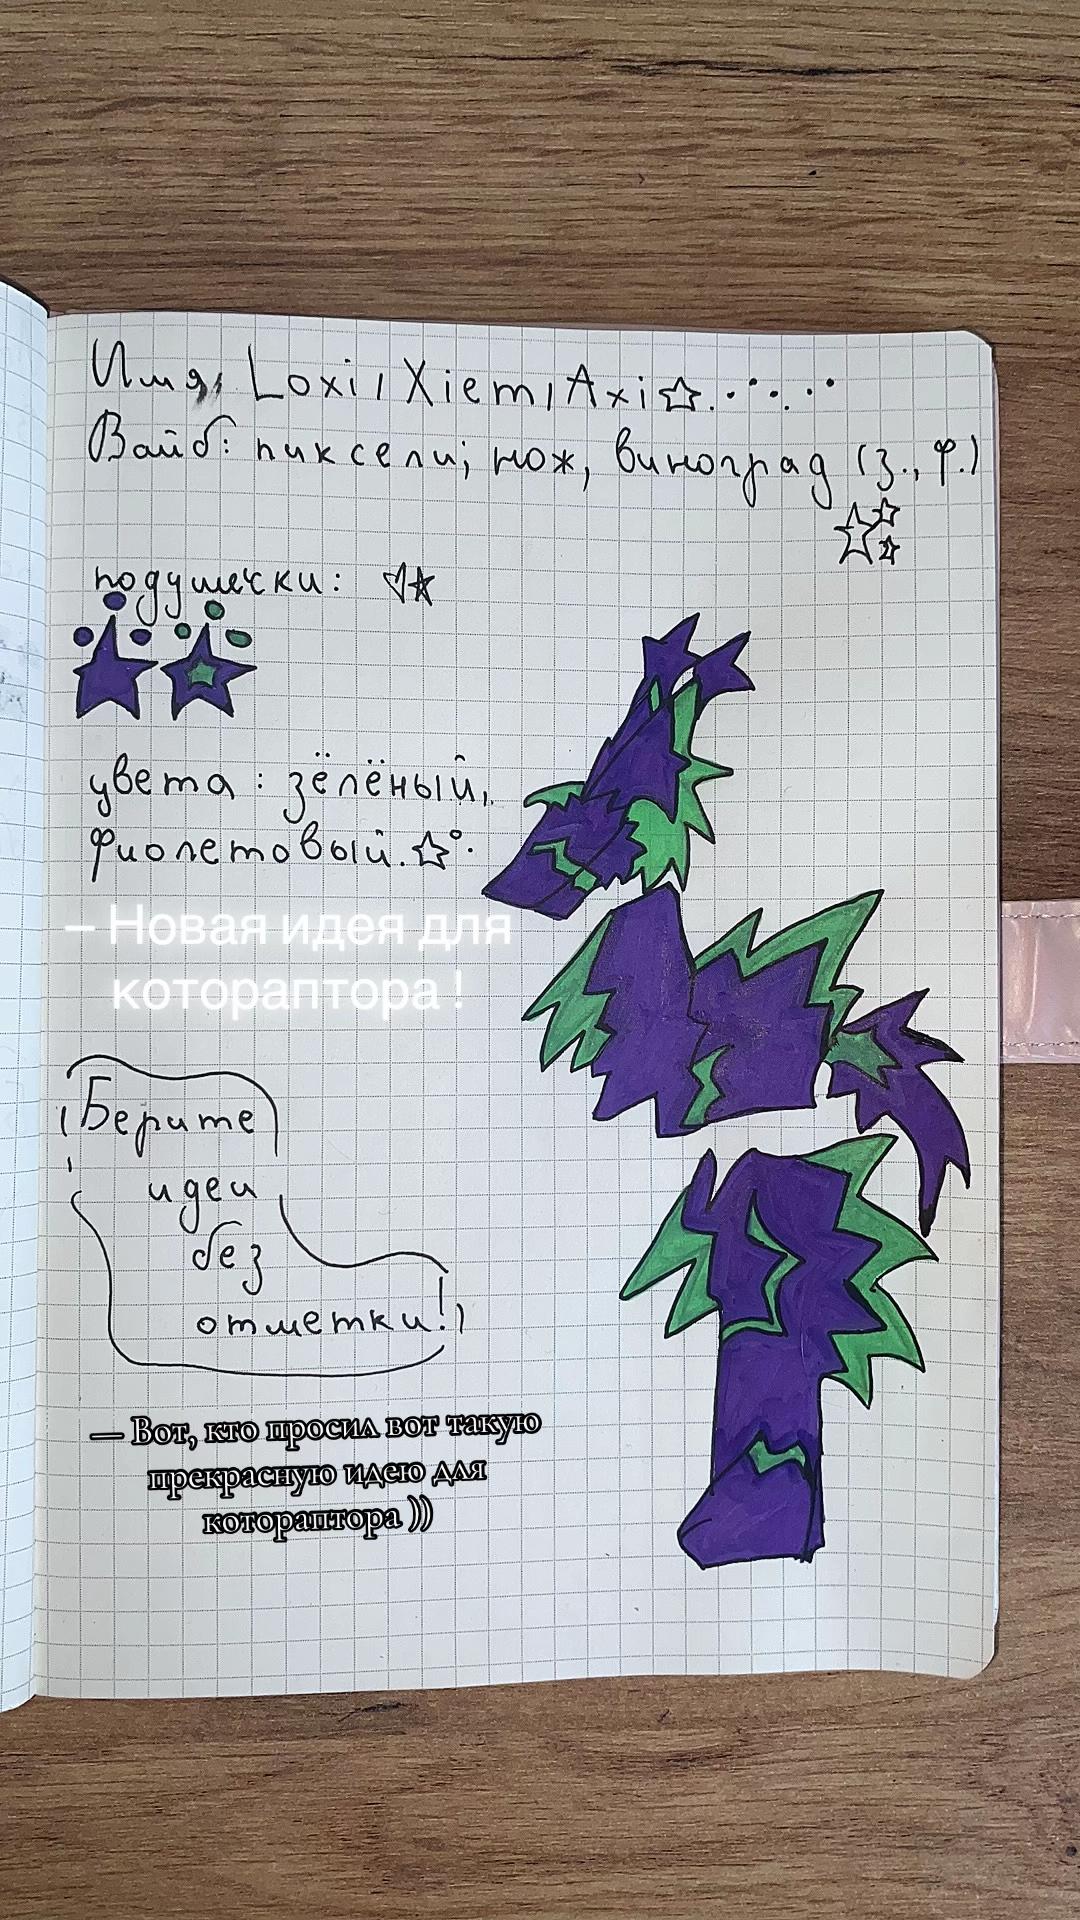 Имя, Loxi, Xiem, Axi
Вайб: пиксели; нож, виноград (з., ф.)
подушечки:
цвета: зёлёный,
фиолетовый.
– Новая идея для
котораптора !
Берите
идеи
без
отметки!
— Вот, кто просил вот такую
прекрасную идею для
котораптора ))